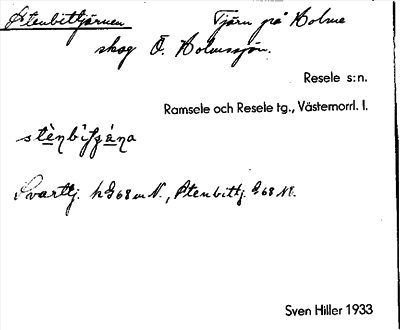 Stenbittjärnen Tjärn på Holme
skog Ö. Holmsjön.
Resele s:n.
Ramsele och Resele tg., Västernorrl. l.
Svarttj. h G68 m N., Stenbittj. G68 NE.
Sven Hiller 1933